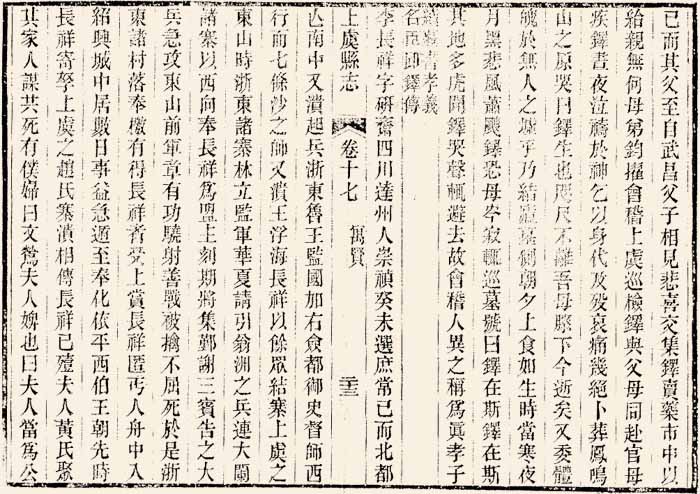 已而其父至自武昌父子相見悲喜交集鐸賣藥市中以
給親無何母弟鈞擢會稽上虞巡檢鐸與父母同赴官母
疾鐸晝夜泣禱於神乞以身代及歿哀痛幾絕卜葬鳳鳴
山之原哭曰鐸生也咫尺不離吾母膝下今逝矣又委體
魄於無人之墟乎乃結廬墓側朝夕上食如生時當寒夜
月黑悲風蕭颼鐸恐母岑寂輒巡墓號曰鐸在斯鐸在斯
其地多虎聞鐸哭聲輒避去故會稽人異之稱為眞孝子
李長祥字研齋四川達州人崇禎癸未選庶常已而北都
上虞縣志
卷十七
寓賢
亾南中又潰起兵浙東魯王監國加右僉都御史督師西
行而七條沙之師又潰王浮海長祥以餘眾結寨上虞之
東山時浙東諸寨林立監軍華夏請引翁洲之兵連大閫
諸寨以西向奉長祥為盟主刻期將集鄞謝三賓告之大
兵急攻東山前軍章有功驍射善戰被擒不屈死於是浙
東諸村落奉檄有得長祥者受上賞長祥匿丐人舟中入
紹興城中居數日事益急遁至奉化依平西伯王朝先時
長祥寄孥上虞之趙氏寨潰相傳長祥已殪夫人黃氏聚
其家人謀共死有僕婦曰文鶯夫人婢也曰夫人當為公